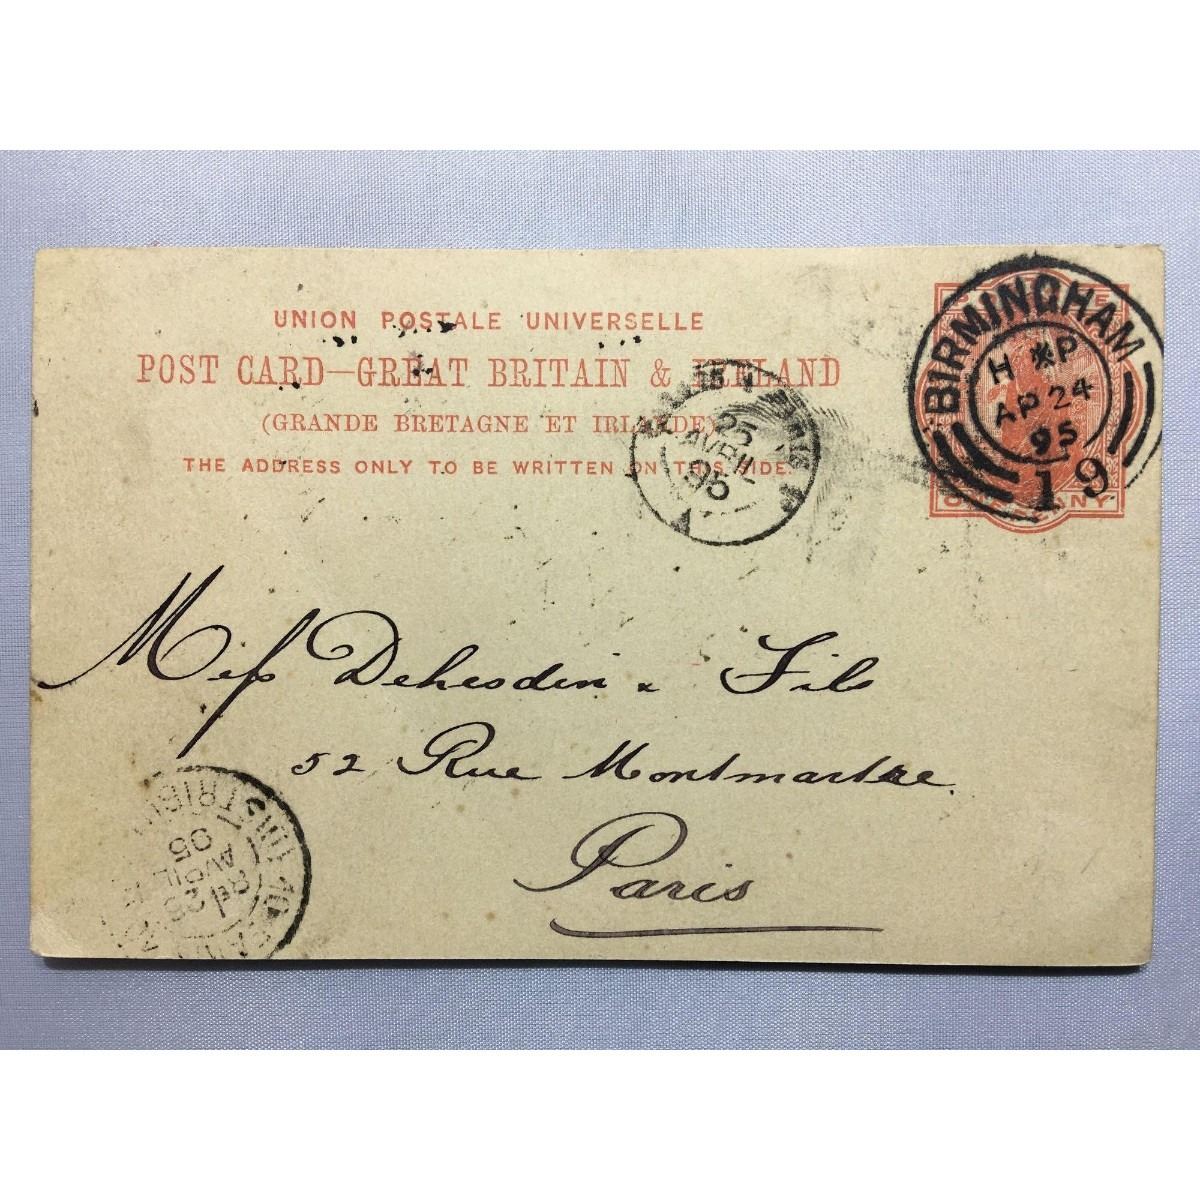 UNION POSTALE UNIVERSELLE
POST CARD—GREAT BRITAIN & IRELAND
(GRANDE BRETAGNE ET IRLANDE)
THE ADDRESS ONLY TO BE WRITTEN ON THIS SIDE.
BIRMINGHAM
H P
AP 24
95
19
ONE PENNY
25
AVRIL
95
Mess Dehesdin & Fils
52 Rue Montmartre
Paris